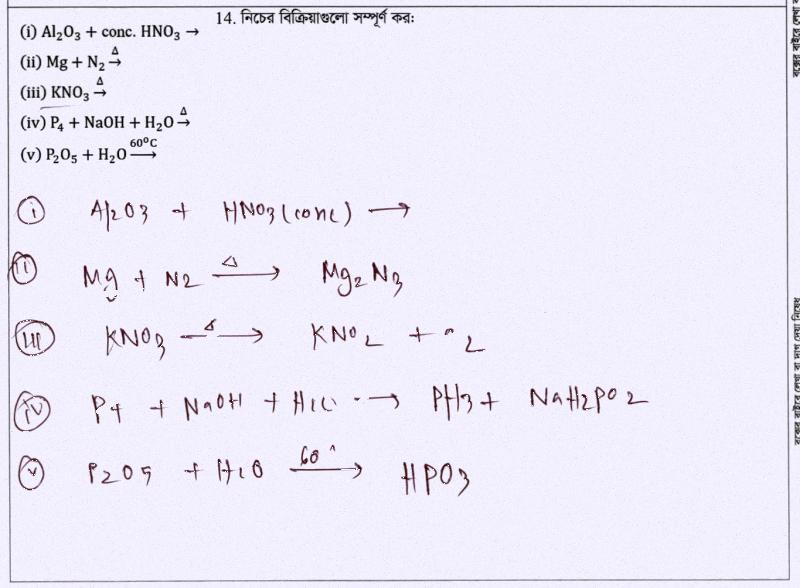 14. নিচের বিক্রিয়াগুলো সম্পূর্ণ কর:
(i) Al₂O₃ + conc. HNO₃ →
(ii) Mg + N₂ →Δ
(iii) KNO₃ →Δ
(iv) P₄ + NaOH + H₂O →Δ
(v) P₂O₅ + H₂O →60⁰C
(i) Al₂O₃ + HNO₃ (conc) →
(ii) Mg + N₂ →Δ Mg₂N₃
(iii) KNO₃ →Δ KNO₂ +
(iv) P₄ + NaOH + → PH₃ + NaH₂PO₂
(v) P₂O₅ + H₂O →60° HPO₃